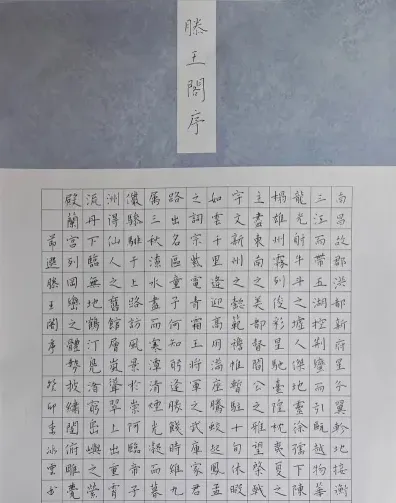 滕王閣序
南昌故郡洪都新府星分翼軫地接衡
三江而帶五湖控蠻荊而引甌越物華
龍光射牛斗之墟人傑地靈徐孺下陳
榻雄州霧列俊彩星馳臺隍枕夷夏之
主盡東南之美都督閻公之雅望棨戟
宇文新州之懿範襜帷暫駐十旬休暇
如雲千里逢迎高朋滿座騰蛟起鳳孟
之詞宗紫電青霜王將軍之武庫家君
路出名區童子何知躬逢勝餞時維九
屬三秋潦水盡而寒潭清煙光凝而暮
儼驂騑于上路訪風景于崇阿臨帝子
洲得仙人之舊館層巒聳翠上出重霄
流丹下臨無地鶴汀鳧渚窮島嶼之縈
殿蘭宮列岡巒之體勢披繡闥俯雕甍
節選滕王閣序 癸卯李冰雲书